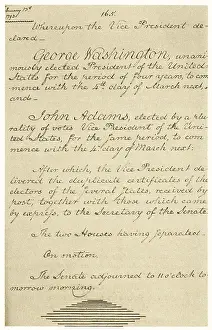 165.
Whereupon the Vice President de-
clared—
George Washington, unani-
mously elected President of the United
States for the period of four years, to com-
mence with the 4th day of March next,
and—
John Adams, elected by a plu-
rality of votes Vice President of the Uni-
ted States, for the same period, to com-
mence with the 4th day of March next.
After which, the Vice President de-
livered the duplicate certificates of the
electors of the several States, received by
post, together with those which came
by express, to the Secretary of the Senate.
The two Houses having separated.
On motion.
The Senate adjourned to 11 o'clock to-
morrow morning.